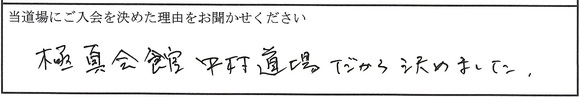 当道場にご入会を決めた理由をお聞かせください
極真会館中村道場だから決めました.